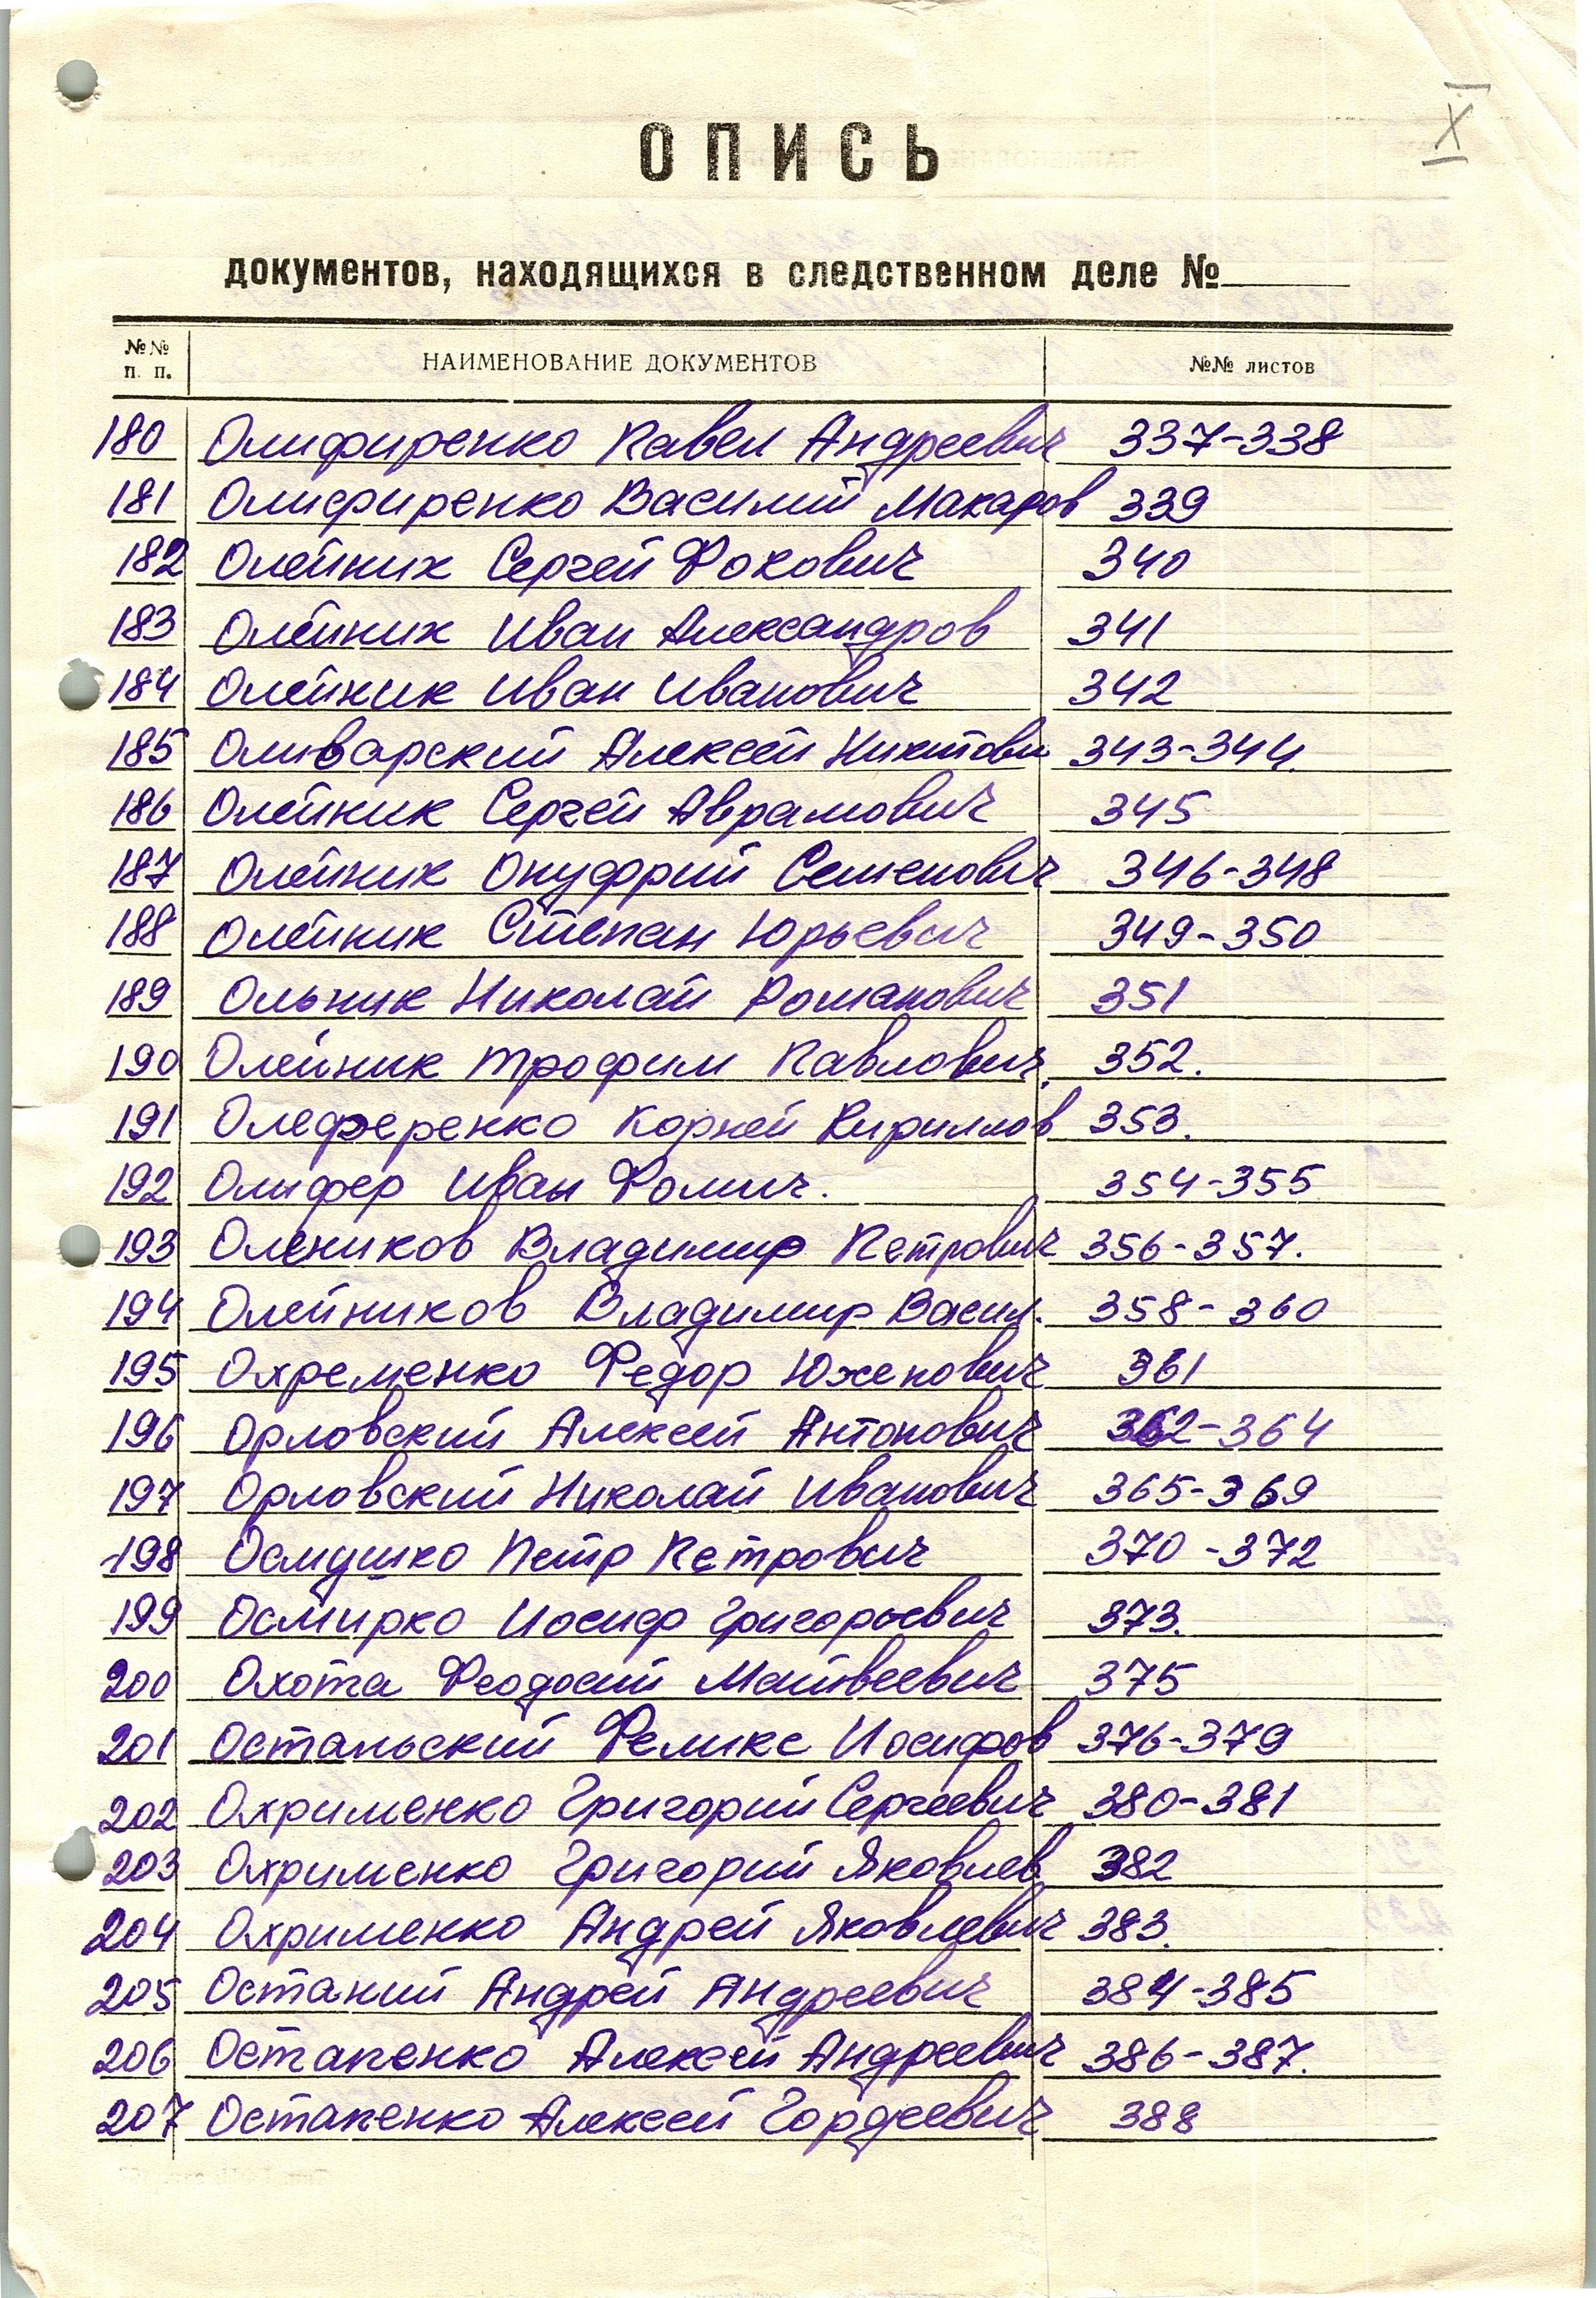 X
ОПИСЬ
документов, находящихся в следственном деле №
№№ п. п. НАИМЕНОВАНИЕ ДОКУМЕНТОВ №№ листов
180 Олифиренко Павел Андреевич 337-338
181 Олифиренко Василий Макаров 339
182 Олейник Сергей Фокович 340
183 Олейник Иван Александров 341
184 Олейник Иван Иванович 342
185 Оливарский Алексей Никитови 343-344.
186 Олейник Сергей Аврамович 345
187 Олейник Онуфрий Семенович 346-348
188 Олейник Степан Юрьевич 349-350
189 Ольник Николай Романович 351
190 Олейник Трофим Павлович. 352.
191 Олеференко Корней Кириллов 353.
192 Олифер Иван Фомич. 354-355
193 Олеников Владимир Петрович 356-357.
194 Олейников Владимир Васил. 358-360
195 Охременко Федор Юхенович 361
196 Орловский Алексей Антонович 362-364
197 Орловский Николай Иванович 365-369
198 Осмушко Петр Петрович 370-372
199 Осмирко Иосиф Григорьевич 373.
200 Охота Феодосий Матвеевич 375
201 Остальский Феликс Иосифов 376-379
202 Охрименко Григорий Сергеевич 380-381
203 Охрименко Григорий Яковлев 382
204 Охрименко Андрей Яковлевич 383.
205 Остапий Андрей Андреевич 384-385
206 Остапенко Алексей Андреевич 386-387.
207 Остапенко Алексей Гордеевич 388